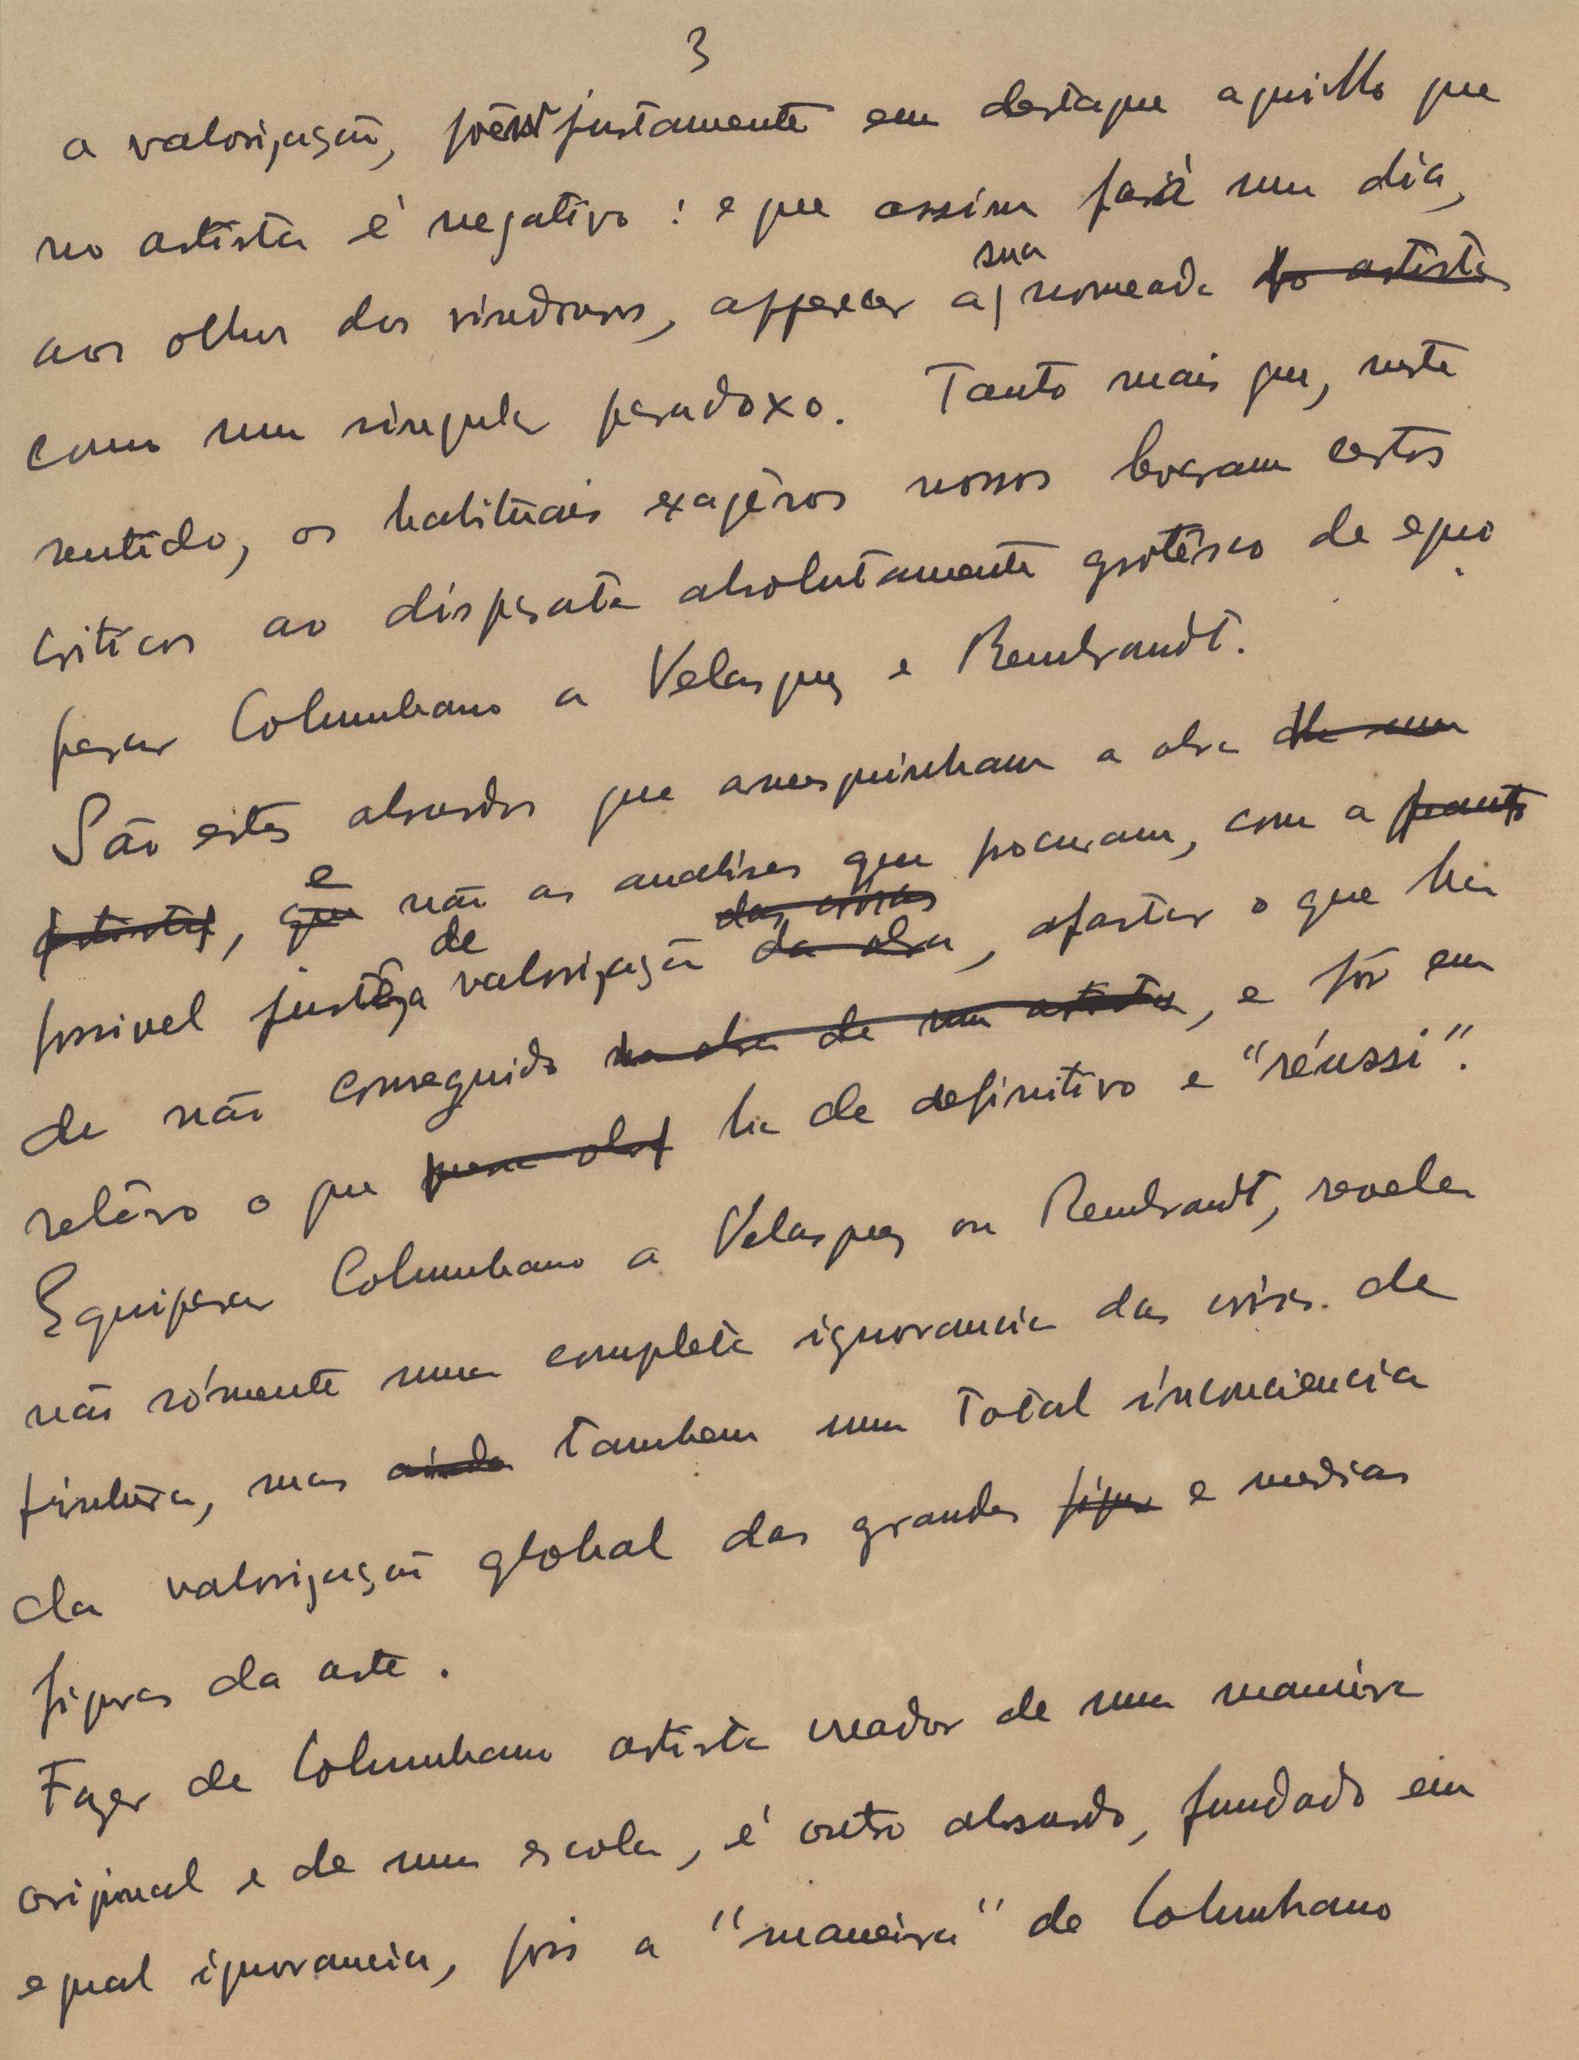 3
a valorização, põem justamente em destaque aquillo que
no artista é negativo: e que assim fará um dia,
aos olhos dos vindouros, apparecer a sua nomeada do artista
como um singular paradoxo. Tanto mais que, neste
sentido, os habituais exagêros nossos levaram certos
criticos ao disparate absolutamente grotêsco de equi
parar Columbano a Velasquez e Rembrandt.
São estes absurdos que amesquinham a obra de um
artista, que e não as analises que procuram, com a
possivel justêza de valorização das coisas da obra, afastar o que ha
de não conseguido na obra de um artista, e pôr em
relêvo o que ha de definitivo e "réussi".
Equiparar Columbano a Velasquez ou Rembrandt, revela
não sómente uma completa ignorancia das coisas de
pintura, mas ainda tambem uma total inconciencia
da valorização global das grandes figu e medias
figuras da arte.
Fazer de Columbano artista creador de uma maneira
original e de uma escola, é outro absurdo, fundado em
equal ignorancia, pois a "maneira" de Columbano